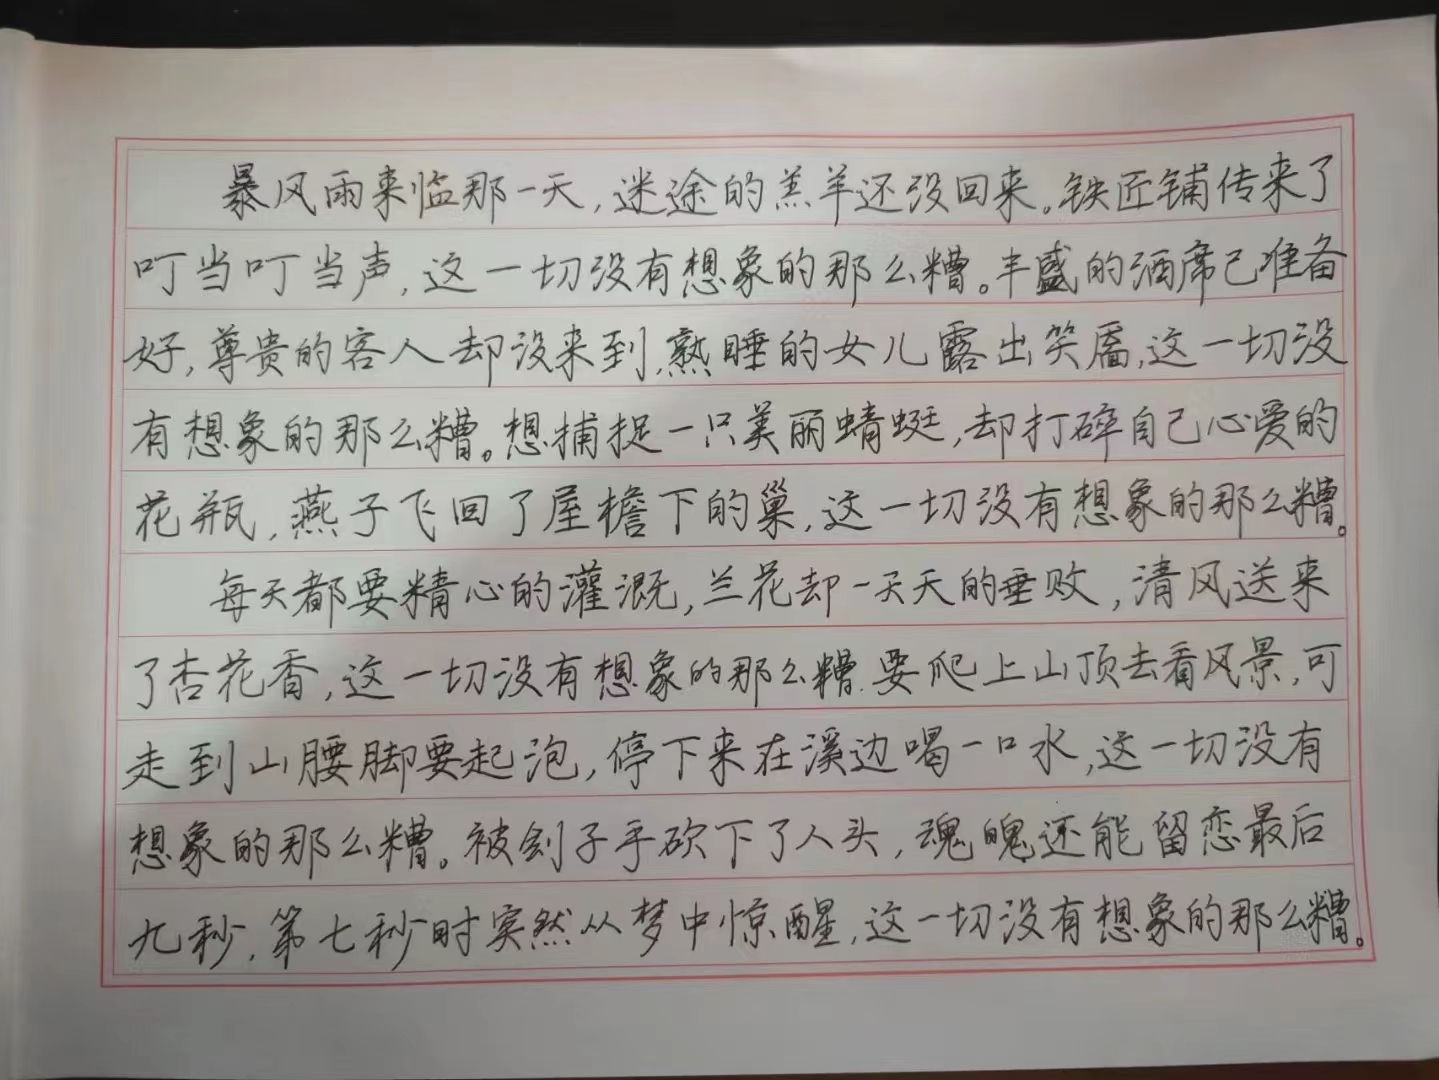 暴风雨来临那一天,迷途的羔羊还没回来。铁匠铺传来了
叮当叮当声,这一切没有想象的那么糟。丰盛的酒席已准备
好,尊贵的客人却没来到,熟睡的女儿露出笑靥,这一切没
有想象的那么糟。想捕捉一只美丽蜻蜓,却打碎自己心爱的
花瓶,燕子飞回了屋檐下的巢,这一切没有想象的那么糟。
每天都要精心的灌溉,兰花却一天天的垂败,清风送来
了杏花香,这一切没有想象的那么糟.要爬上山顶去看风景,可
走到山腰脚要起泡,停下来在溪边喝一口水,这一切没有
想象的那么糟。被刽子手砍下了人头,魂魄还能留恋最后
九秒,第七秒时突然从梦中惊醒,这一切没有想象的那么糟。